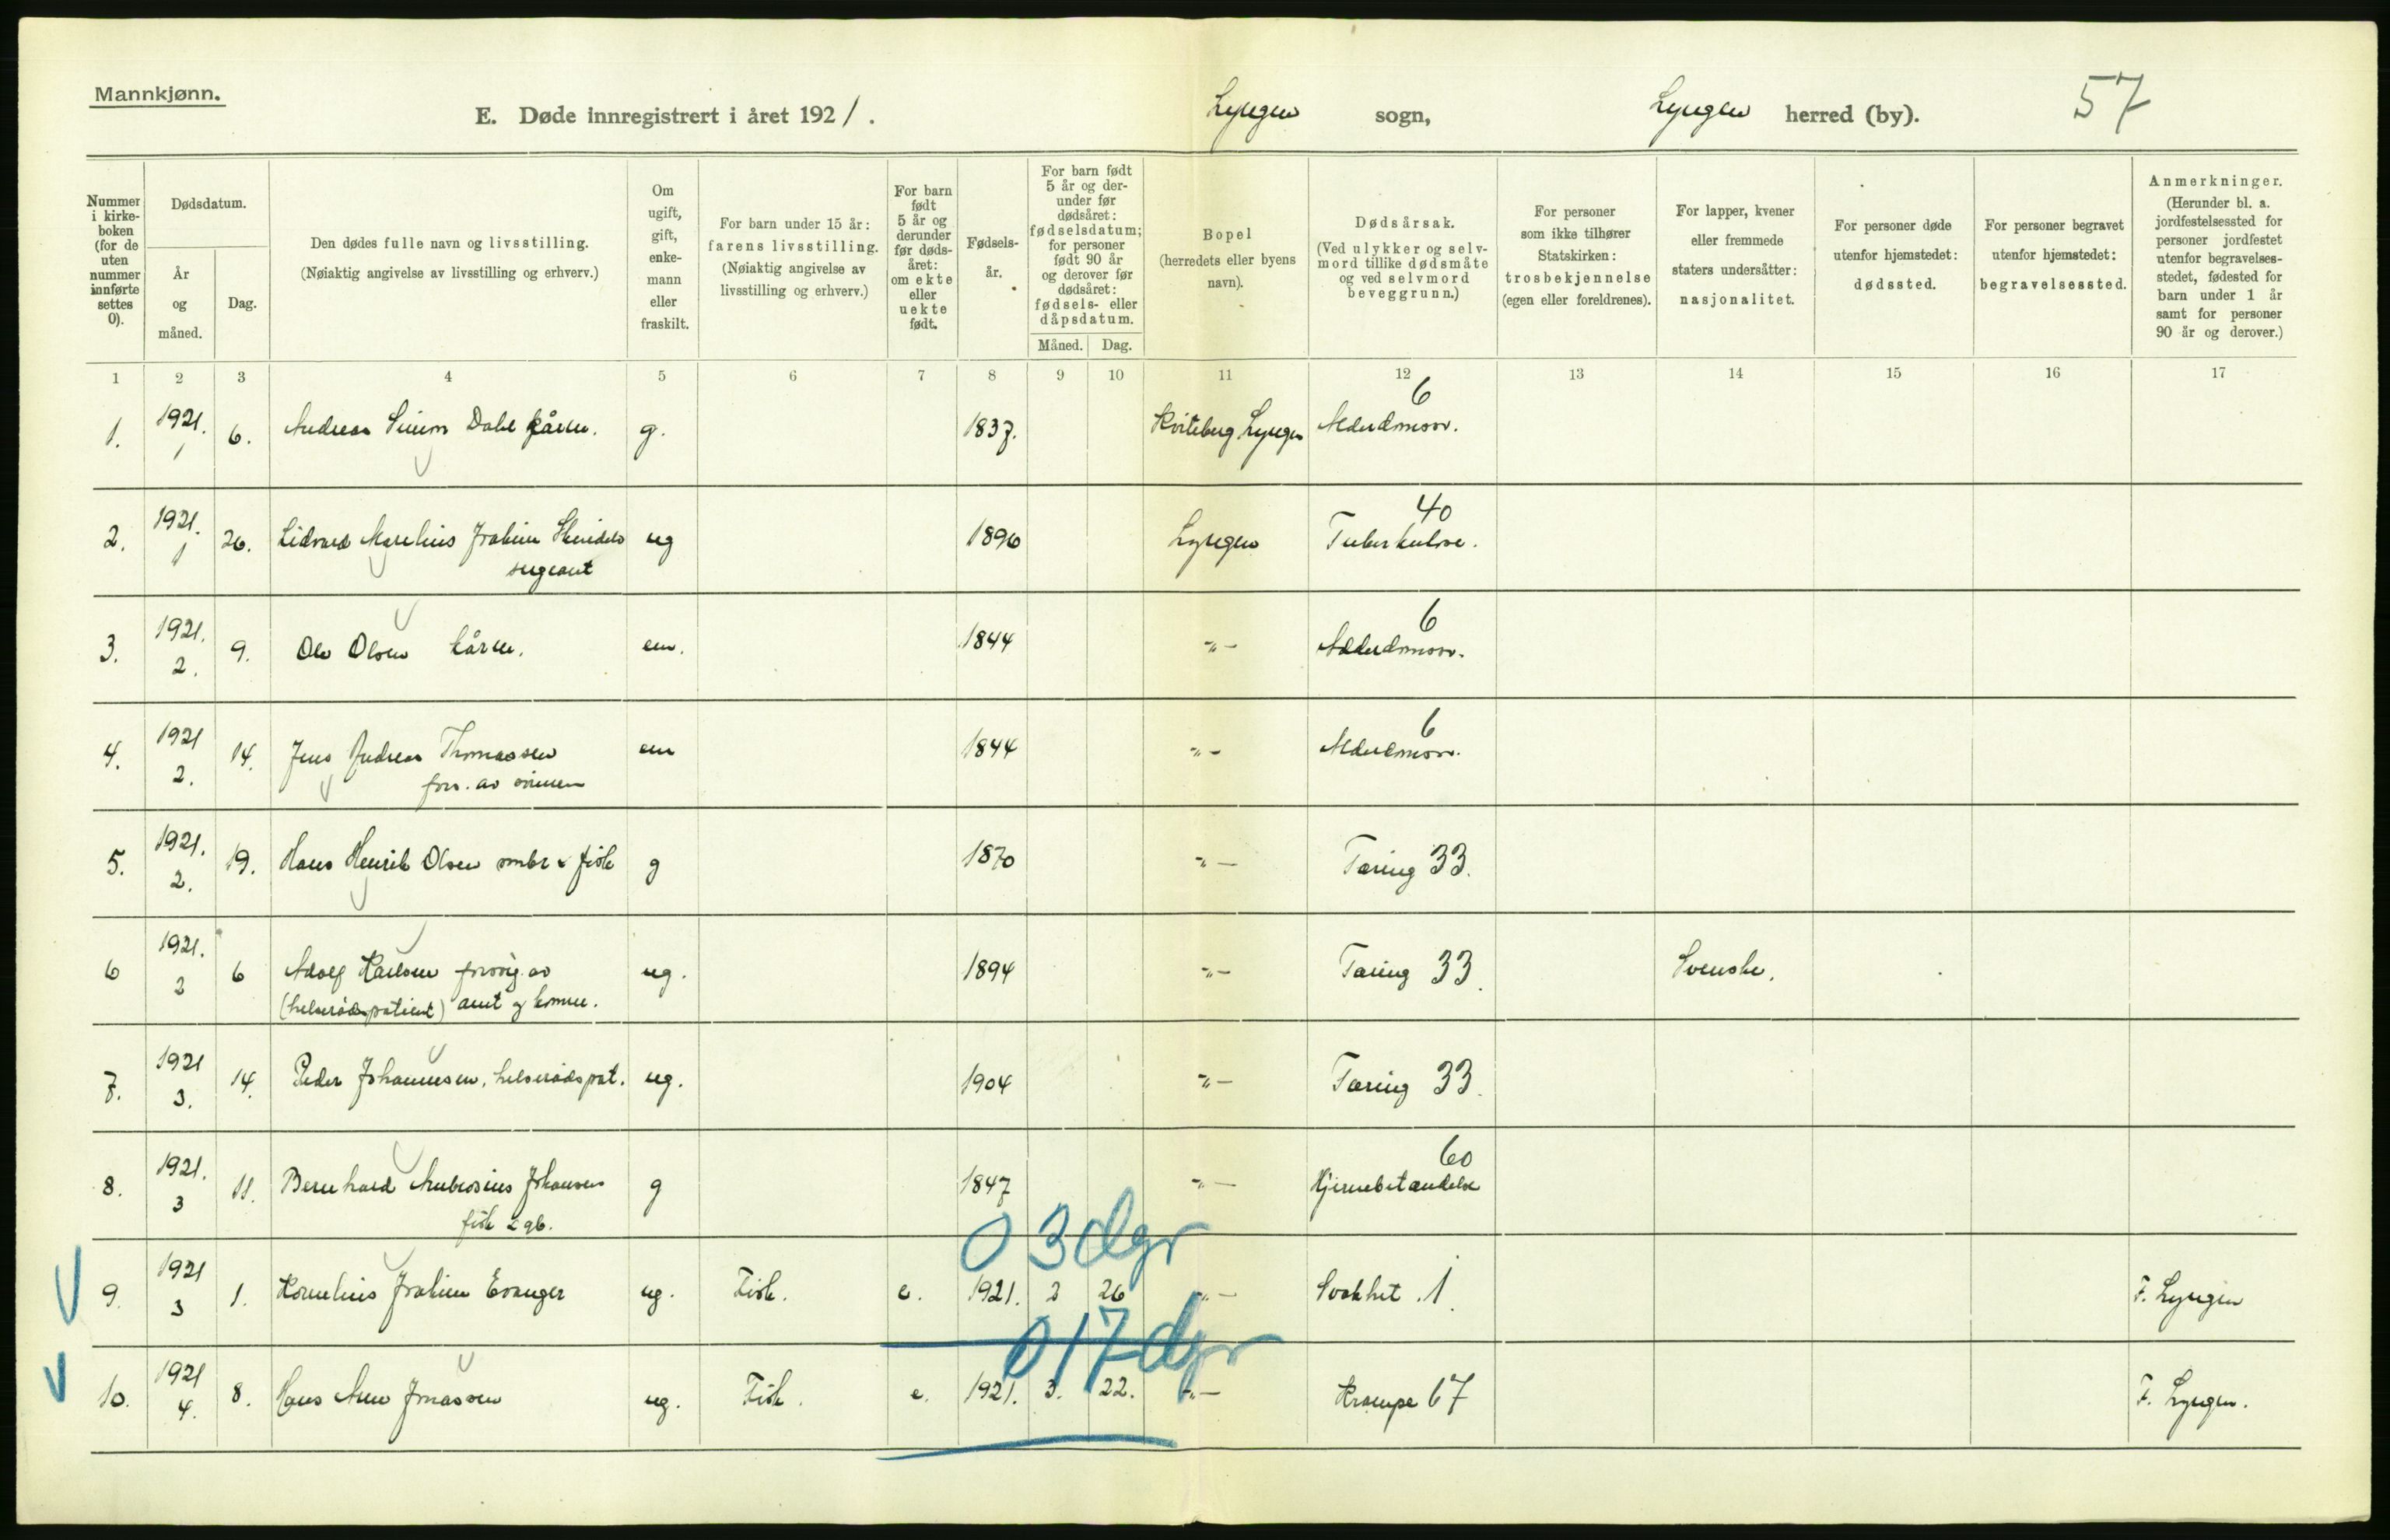 Mannkjønn.
E. Døde innregistrert i året 1921.
Lyngen sogn,
Lyngen herred (by).
57
Nummer i kirkeboken (for de uten nummer innførte settes 0).
Dødsdatum.
År og måned.
Dag.
Den dødes fulle navn og livsstilling.
(Nøiaktig angivelse av livsstilling og erhverv.)
Om ugift, gift, enkemann eller fraskilt.
For barn under 15 år: farens livsstilling.
(Nøiaktig angivelse av livsstilling og erhverv.)
For barn født 5 år og derunder før dødsåret: om ekte eller uekte født.
Fødselsår.
For barn født 5 år og derunder før dødsåret: fødselsdatum; for personer født 90 år og derover før dødsåret: fødsels- eller dåpsdatum.
Måned. Dag.
Bopel
(herredets eller byens navn).
Dødsårsak.
(Ved ulykker og selvmord tillike dødsmåte og ved selvmord beveggrunn.)
For personer som ikke tilhører Statskirken: trosbekjennelse (egen eller foreldrenes).
For lapper, kvener eller fremmede staters undersåtter: nasjonalitet.
For personer døde utenfor hjemstedet: dødssted.
For personer begravet utenfor hjemstedet: begravelsessted.
Anmerkninger.
(Herunder bl. a. jordfestelsessted for personer jordfestet utenfor begravelsesstedet, fødested for barn under 1 år samt for personer 90 år og derover.)
1 2 3 4 5 6 7 8 9 10 11 12 13 14 15 16 17
1. 1921. 1 6. Andreas Simon Dahl kårm. g. 1837. Kviteberg Lyngen Alderdomssv. 6
2. 1921. 1 26. Lidvard Marelius Joakim sergeant ug 1896 Lyngen Tuberkulose. 40
3. 1921. 2. 9. Ole Olsen kårm. em. 1844 -"- Alderdomssv. 6
4. 1921 2. 14. Jens Andreas Thomassen em 1844 -"- Alderdomssv. 6
fors. av
5. 1921. 2. 19. Hans Henrik Olsen fisk g 1870 -"- Tæring 33.
6 1921. 2 6 Adolf Karlsen forsørg. av ug. 1894 -"- Tæring 33. Svenske.
(helserådspatient) amt og komm.
7. 1921 3. 14. Peder Johannesen, helserådspat. ug. 1904 -"- Tæring 33.
8. 1921. 3 11. Bernhard Ambrosius Johansen g 1847 -"- Hjernebetændelse 60
fisk & gb.
0 3 dgr
9. 1921 3 1. Kornelius Joakim Evanger ug. Fisk. e. 1921. 2 26 -"- Svakhet. 1. F. Lyngen
0 17 dgr
10. 1921 4. 8. Hans Arne Jonassen ug. Fisk. e. 1921. 3. 22. -"- Krampe 67 F. Lyngen.